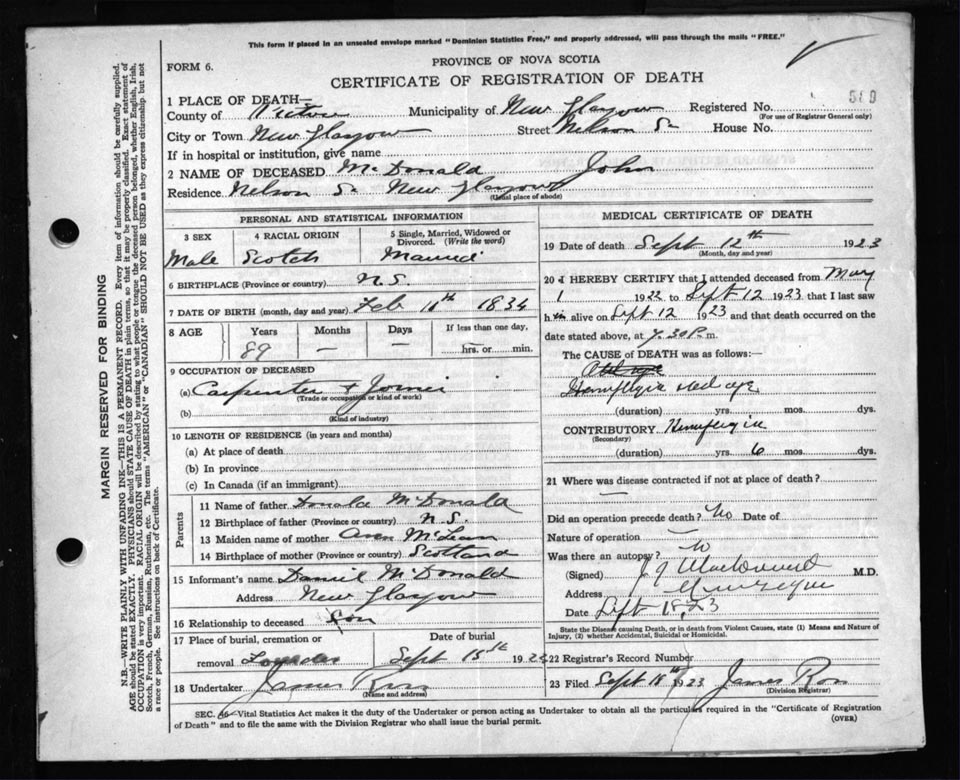 This form if placed in an unsealed envelope marked "Dominion Statistics Free," and properly addressed, will pass through the mails "FREE."
FORM 6.
PROVINCE OF NOVA SCOTIA
CERTIFICATE OF REGISTRATION OF DEATH
1 PLACE OF DEATH—
County of Pictou Municipality of New Glasgow Registered No. 580
(For use of Registrar General only)
City or Town New Glasgow Street Nelson St House No.
If in hospital or institution, give name
2 NAME OF DECEASED McDonald John
Residence Nelson St New Glasgow
(Usual place of abode)
PERSONAL AND STATISTICAL INFORMATION
3 SEX 4 RACIAL ORIGIN 5 Single, Married, Widowed or Divorced. (Write the word)
Male Scotch Married
6 BIRTHPLACE (Province or country) N.S.
7 DATE OF BIRTH (month, day and year) Feb 11th 1834
8 AGE Years Months Days If less than one day,
89 — — hrs. or min.
9 OCCUPATION OF DECEASED
(a) Carpenter & Joiner
(Trade or occupation or kind of work)
(b)
(Kind of industry)
10 LENGTH OF RESIDENCE (in years and months)
(a) At place of death
(b) In province
(c) In Canada (if an immigrant)
Parents
11 Name of father Donald McDonald
12 Birthplace of father (Province or country) N.S.
13 Maiden name of mother Ann McLean
14 Birthplace of mother (Province or country) Scotland
15 Informant's name Daniel McDonald
Address New Glasgow
16 Relationship to deceased Son
17 Place of burial, cremation or removal Date of burial
Sept 15th 192
18 Undertaker James Ross
(Name and address)
MEDICAL CERTIFICATE OF DEATH
19 Date of death Sept 12th 1923
(Month, day and year)
20 I HEREBY CERTIFY that I attended deceased from May
1 1922 to Sept 12 1923 that I last saw
him alive on Sept 12 1923 and that death occurred on
date stated above, at 7.30 P.m.
The CAUSE of DEATH was as follows:
Hemiplegia old age
(duration) yrs. mos. dys.
CONTRIBUTORY Hemiplegia
(Secondary)
(duration) yrs. 6 mos. dys.
21 Where was disease contracted if not at place of death?
Did an operation precede death? No Date of
Nature of operation
Was there an autopsy? No
(Signed) M.D.
Address
Date Sept 18 23
State the Disease causing Death, or in death from Violent Causes, state (1) Means and Nature of Injury, (2) whether Accidental, Suicidal or Homicidal.
22 Registrar's Record Number
23 Filed Sept 18th 1923 James Ross
(Division Registrar)
SEC. 46—Vital Statistics Act makes it the duty of the Undertaker or person acting as Undertaker to obtain all the particulars required in the "Certificate of Registration
of Death" and to file the same with the Division Registrar who shall issue the burial permit. (OVER)
MARGIN RESERVED FOR BINDING
N.B.—WRITE PLAINLY WITH UNFADING INK—THIS IS A PERMANENT RECORD. Every item of information should be carefully supplied.
AGE should be stated EXACTLY. PHYSICIANS should STATE CAUSE OF DEATH in plain terms, so that it may be properly classified. Exact statement of
OCCUPATION is very important. RACIAL ORIGIN will be described by stating to what people or tongue the deceased person belonged, whether English, Irish,
Scotch, French, German, Russian, Ruthenian, etc. The terms "AMERICAN" or "CANADIAN" SHOULD NOT BE USED as they express citizenship but not
a race or people. See instructions on back of Certificate.